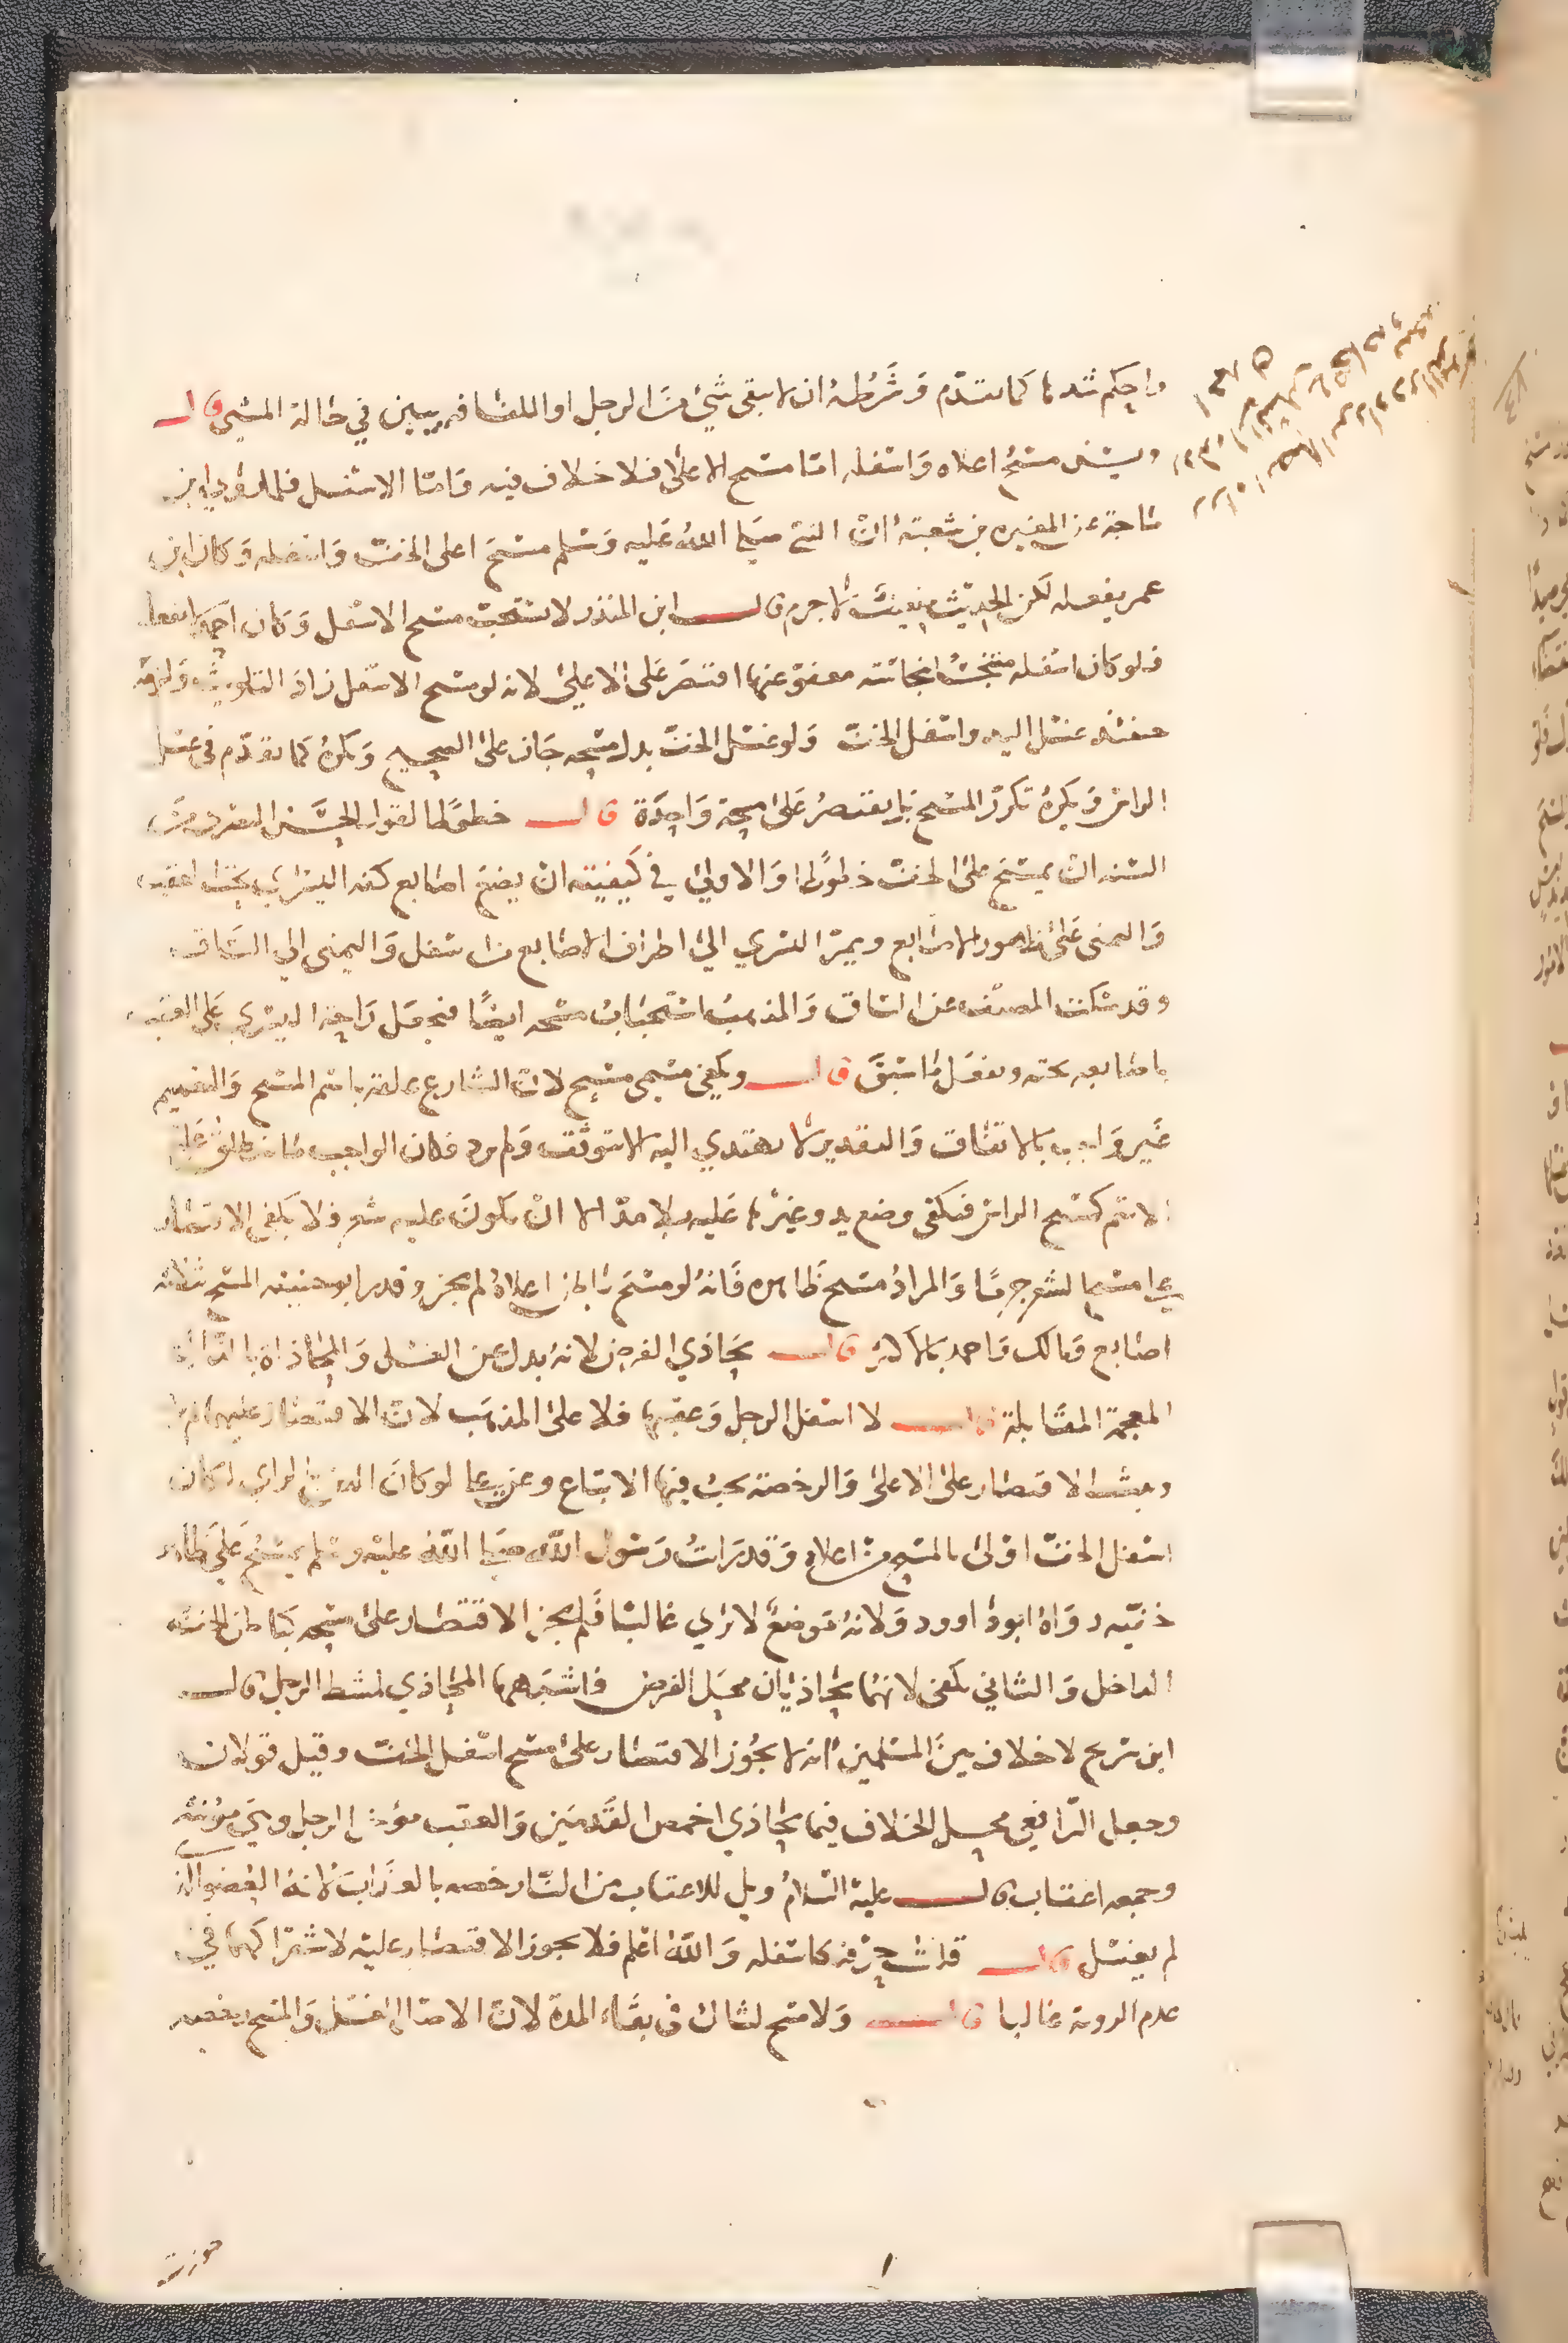 واحكم شدها كما تقدم وشرطه ان لا يبقى شيء من الرجل او اللفافه يبين في حالة المشي قال
ويسن مسح اعلاه واسفله اما مسح الاعلى فلا خلاف فيه واما الاسفل فلما روى ابن
ماجة عن المغيره بن شعبة ان النبي صلى الله عليه وسلم مسح اعلى الخف واسفله وكان ابن
عمر يفعله لكن الحديث ضعيف لا جرم قال ابن المنذر لا يستحب مسح الاسفل وكان
فلو كان اسفله متنجسا نجاسة معفو عنها اقتصر على الاعلى لانه لو مسح الاسفل زاد التلويث ولزمه
حينئذ غسل اليد واسفل الخف ولو غسل الخف بدل مسحه جاز على الصحيح ويكره كما تقدم في غسل
الراس ويكره تكرر المسح بل يقتصر على مسحة واحدة قال خطوطا لقول الحسن البصري من
السنه ان يمسح على الخف خطوطا والاولى في كيفيته ان يضع اصابع كفه اليسرى تحت العقب
واليمنى على ظهور الاصابع ويمر اليسرى الى اطراف الاصابع من اسفل واليمنى الى الساق
وقد سكت المصنف عن الساق والمذهب استحباب مسحه ايضا فيجعل راحة اليسرى على العقب
باصابعه تحته ويفعل ما سبق قال ويكفي مسمى مسح لان الشارع علقه باسم المسح والتعميم
غير واجب بالاتفاق والتقدير لا يهتدي اليه الا بتوقف ولم يرد فكان الواجب ما ينطلق عليه
الاسم كمسح الراس فيكفي وضع يد وغيرها عليه بلا مد الا ان يكون عليه شعر فلا يكفي الاقتصار
على مسح الشعر جزما والمراد مسح ظاهره فانه لو مسح باطن اعلاه لم يجز وقدر ابو حنيفة المسح بثلاثه
اصابع ومالك واحمد بالاكثر قال يحاذي الفرض لانه بدل عن الغسل والمحاذاة بالذال
المعجمة المقابلة قال لا اسفل الرجل وعقبها فلا على المذهب لان الاقتصار عليهما لم
وثبت الاقتصار على الاعلى والرخصة يجب فيها الاتباع وعن علي لو كان الدين بالراي لكان
اسفل الخف اولى بالمسح من اعلاه وقد رايت رسول الله صلى الله عليه وسلم يمسح على ظاهر
خفيه رواه ابو داوود ولانه موضع لا يرى غالبا فلم يجز الاقتصار على مسحه كباطن الخف
الداخل والثاني يكفي لانهما يحاذيان محل الفرض فاشبها المحاذي لمشط الرجل قال
ابن سريج لا خلاف بين المسلمين انه لا يجوز الاقتصار على مسح اسفل الخف وقيل قولان
وجعل الرافعي محل الخلاف فيما يحاذي اخمص القدمين والعقب مؤخر الرجل وهي مؤنثة
وجمعه اعقاب قال عليه السلام ويل للاعقاب من النار خصه بالعذاب لانه العضو الذي
لم يغسل قال قلت حرفه كاسفله والله اعلم فلا يجوز الاقتصار عليه لاشتراكهما في
عدم الروية غالبا قال ولا مسح لشاك في بقاء المدة لان الاصل الغسل والمسح رخصه